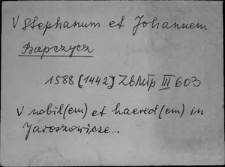 V Stephanum et Johannem
Bapczycz
1588 [1442] ZbMłp III 603
V nobil(em) et haered(em) in
Jaroszowicze...